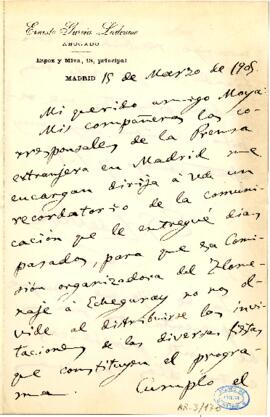 Ernesto García Ladevese
ABOGADO
Espoz y Mina, 18, principal
MADRID 15 de Marzo de 1905
Mi querido amigo Moya:
Mis compañeros los co-
rresponsales de la Prensa
extranjera en Madrid me
encargan dirija á Vd un
recordatorio de la comuni-
cación que le entregué días
pasados, para que esa Comi-
sión organizadora del Home-
naje á Echegaray no nos ol-
vide al distribuirse las invi-
taciones de las diversas fiestas
que constituyen el progra-
ma. Cumplo el
AR.3/170